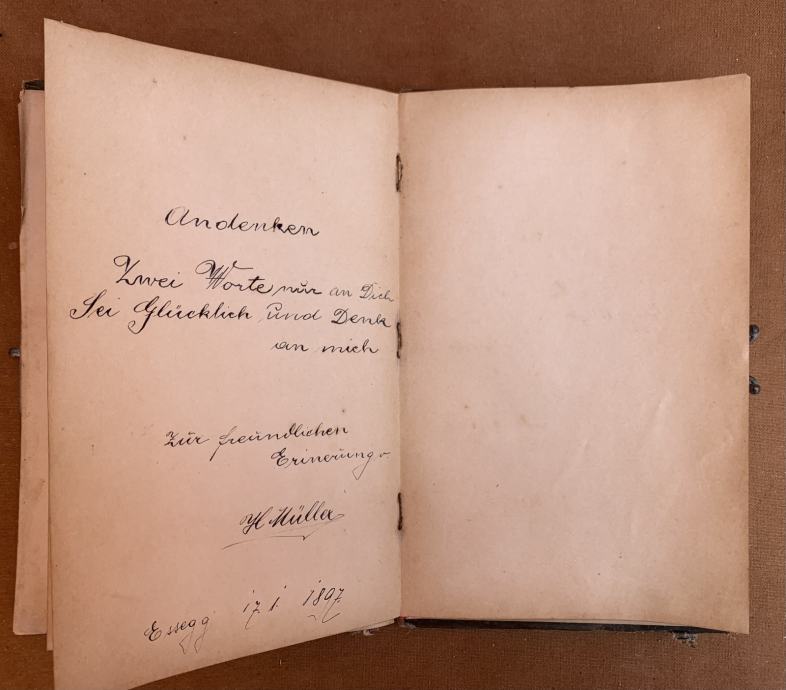 Andenken
Zwei Worte nur an Dich
Sei Glücklich und Denk
an mich
Zur freundlichen
Erinerung v
H Müller
Essegg 17. 1. 1897.